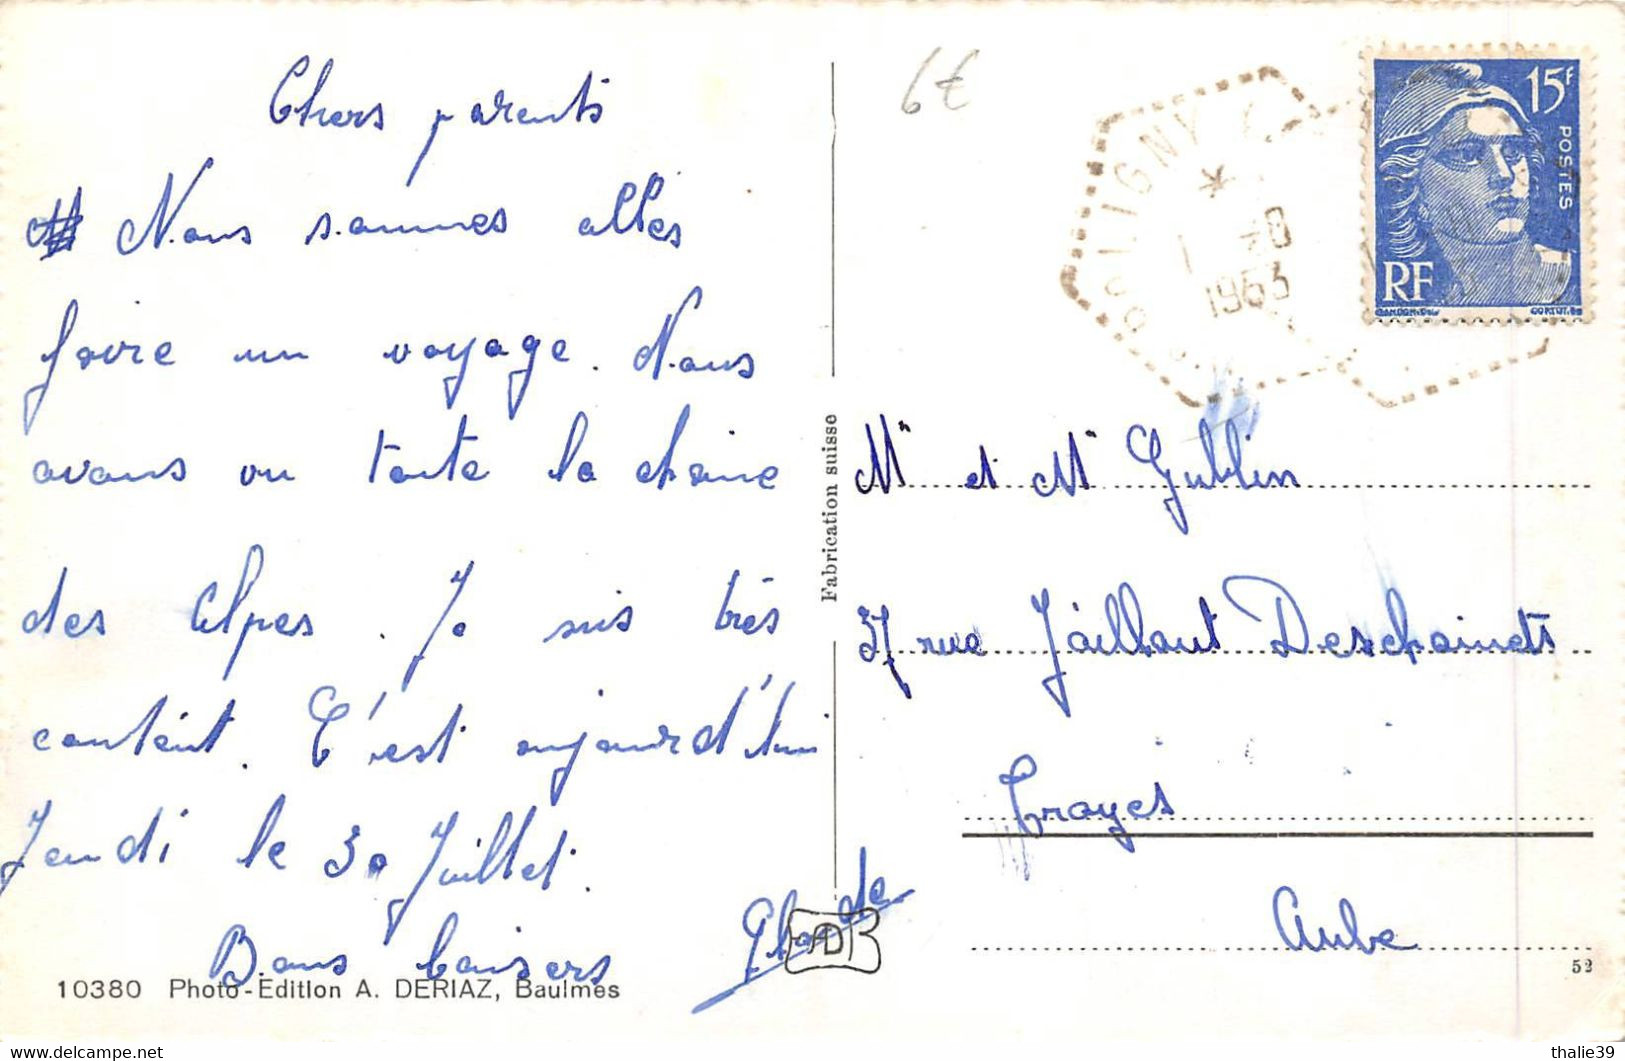 Chers parents
Nous sommes allés
faire un voyage. Nous
avons vu toute la chaine
des Alpes. Je suis très
contént. C'est aujourd'hui
Jeudi le 30 Juillet.
Bons baisers Claude
10380 Photo-Edition A. DERIAZ, Baulmes
Fabrication suisse
6€
POLIGNY
*
1 -8
1953
15F
POSTES
RF
GANDON-DEL
CORTOT-SC
Mr et Mm Gublin
37 rue Jaillant Deschainets
Troyes
Aube
52
https://www.delcampe.net
thalie39